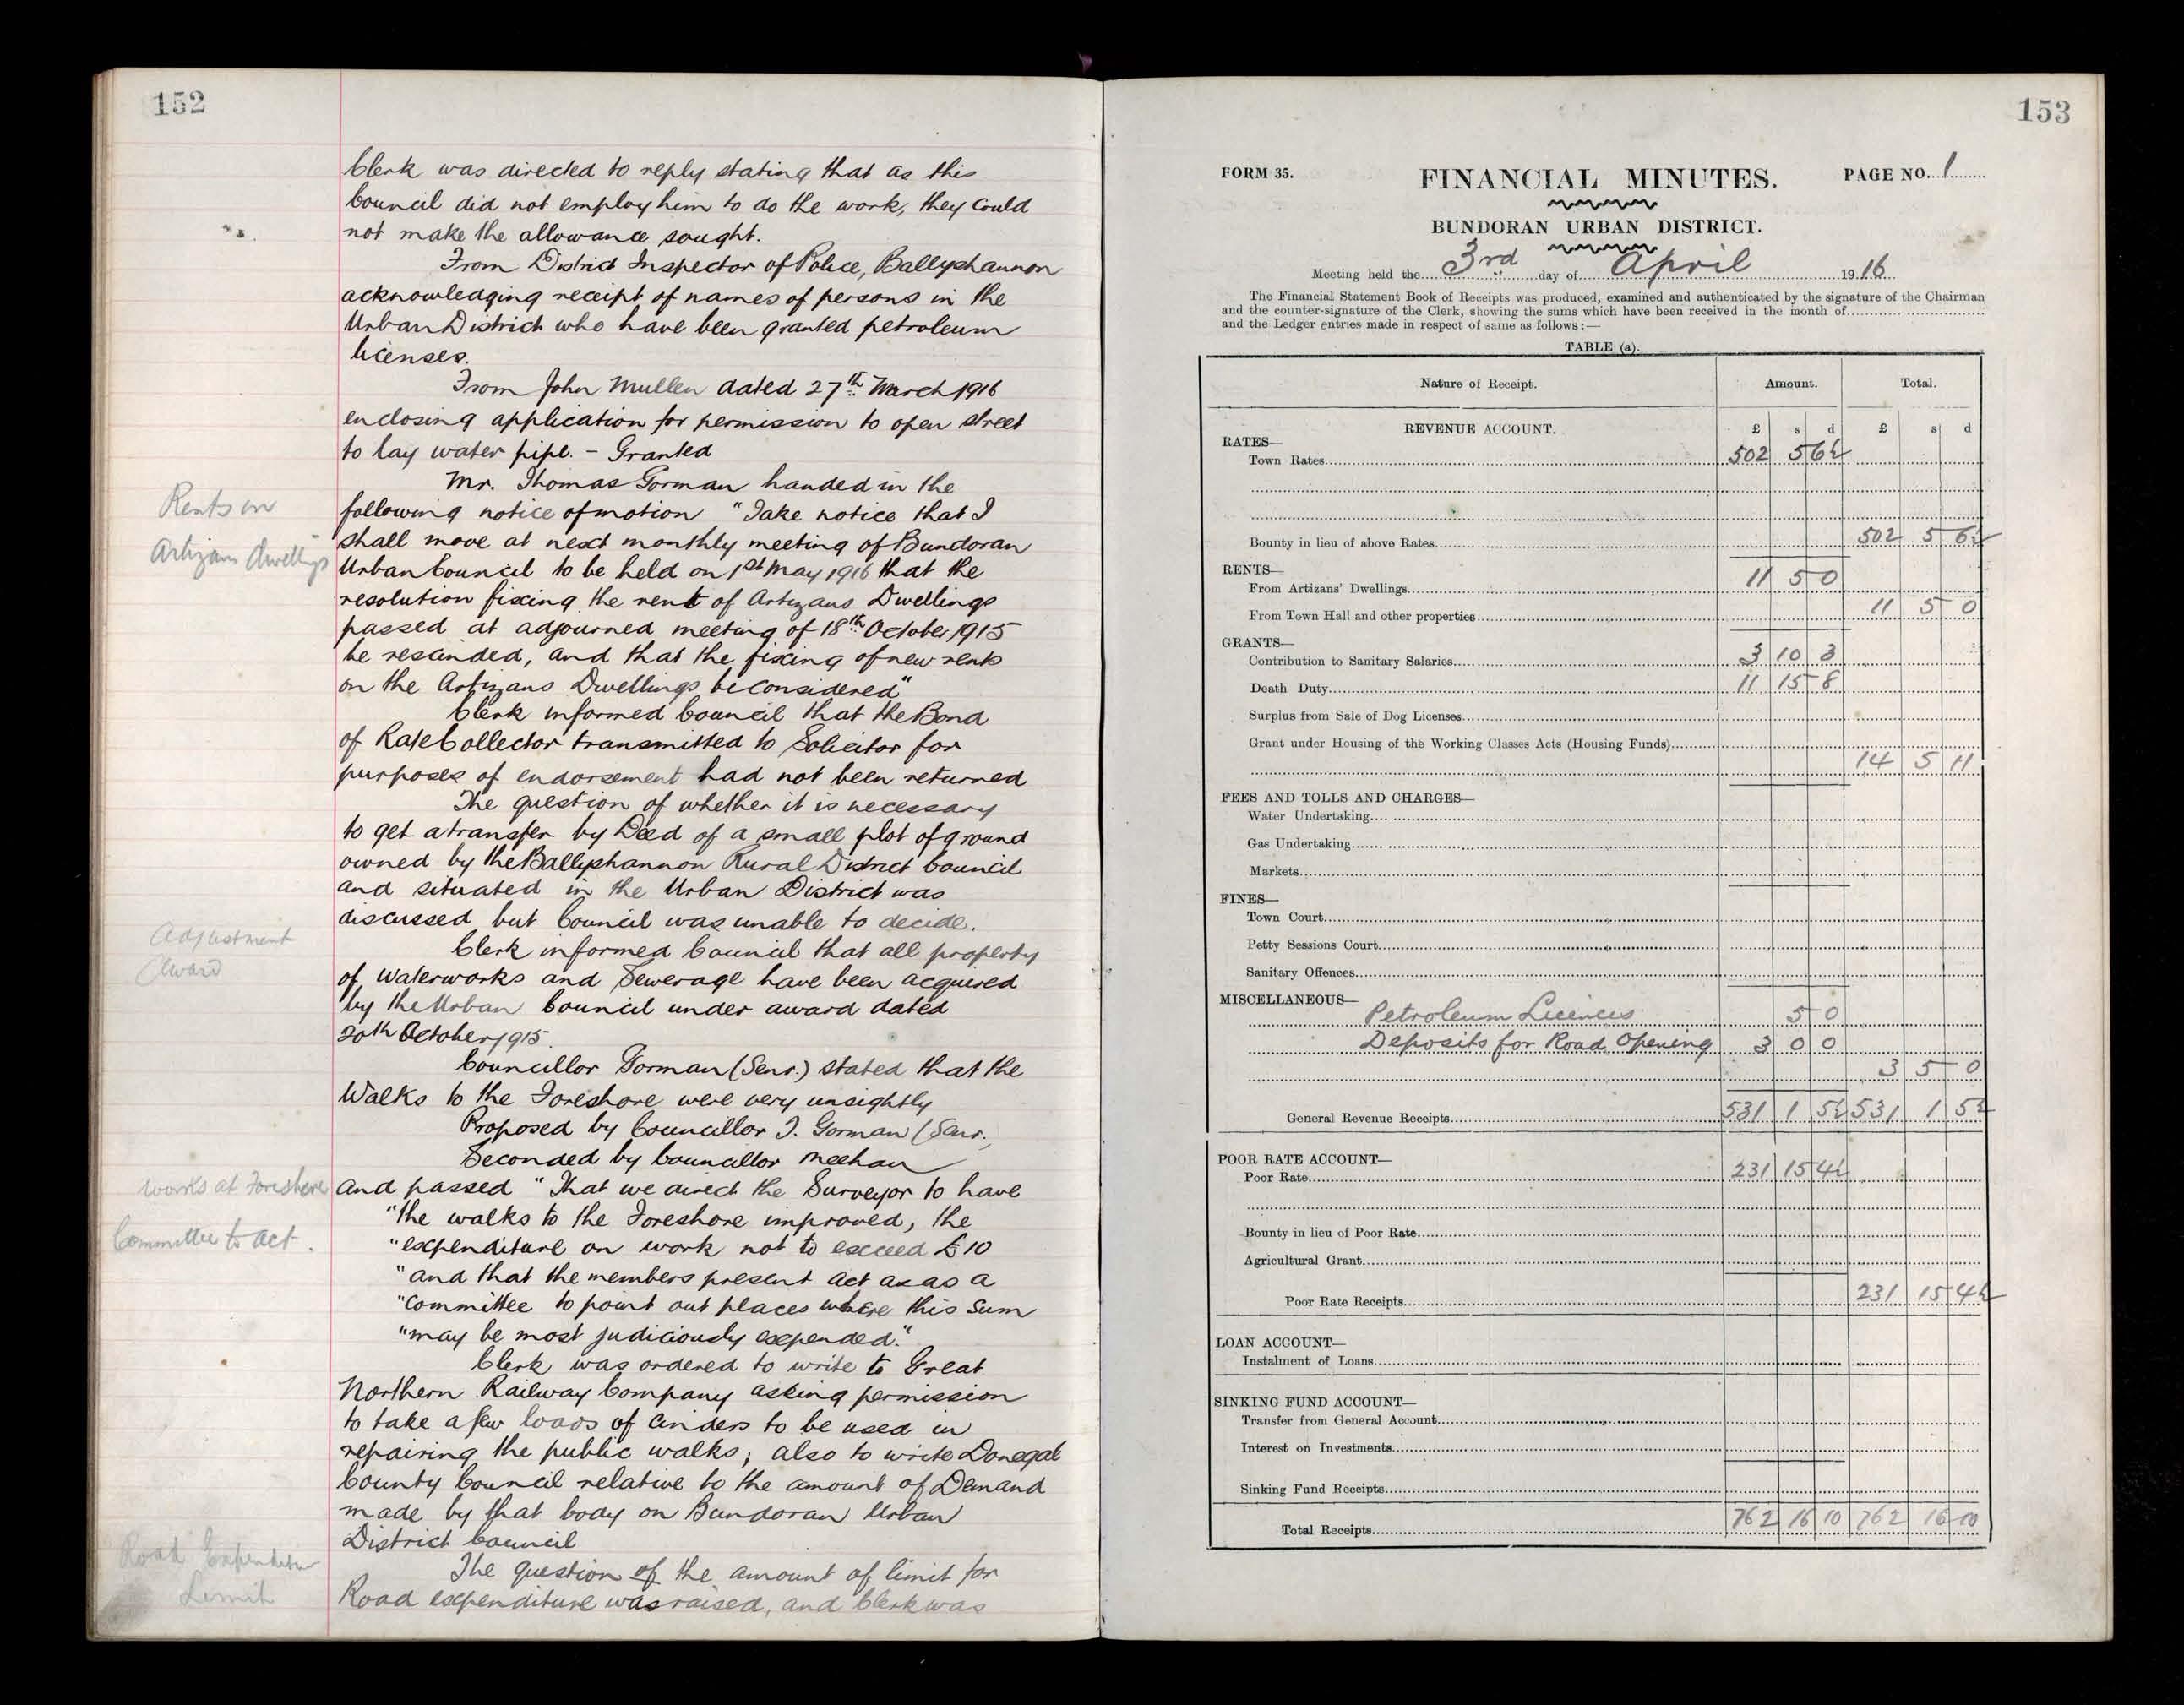 152
Clerk was directed to reply stating that as this
Council did not employ him to do the work, they could
not make the allowance sought.
From District Inspector of Police, Ballyshannon
acknowledging receipt of names of persons in the
Urban District who have been granted petroleum
licenses.
From John Mullen dated 27th March 1916
enclosing application for permission to open street
to lay water pipe. - Granted
Mr. Thomas Gorman handed in the
Rents in
following notice of motion "Take notice that I
shall move at next monthly meeting of Bundoran
Artizans Dwellings
Urban Council to be held on 1st May 1916 that the
resolution fixing the rent of Artizans Dwellings
passed at adjourned meeting of 18th October 1915
be rescinded, and that the fixing of new rents
on the Artizans Dwellings be considered"
Clerk informed Council that the Bond
of Rate Collector transmitted to Solicitor for
purposes of endorsement had not been returned
The question of whether it is necessary
to get a transfer by Deed of a small plot of ground
owned by the Ballyshannon Rural District Council
and situated in the Urban District was
discussed but Council was unable to decide.
Adjustment
Award
Clerk informed Council that all property
of Waterworks and Sewerage have been acquired
by the Urban Council under award dated
20th October 1915.
Councillor Gorman (Senr.) stated that the
Walks to the Foreshore were very unsightly
Proposed by Councillor T. Gorman (Senr.)
Seconded by Councillor Meehan
Works at Foreshore
and passed "That we direct the Surveyor to have
"the walks to the Foreshore improved, the
Committee to act.
"expenditure on work not to exceed £10
"and that the members present act as as a
"Committee to point out places where this sum
"may be most judiciously expended."
Clerk was ordered to write to Great
Northern Railway Company asking permission
to take a few loads of cinders to be used in
repairing the public walks; also to write Donegal
County Council relative to the amount of Demand
made by that body on Bundoran Urban
District Council
Road Expenditure
Limit
The question of the amount of limit for
Road expenditure was raised, and Clerk was
153
FORM 35.
FINANCIAL MINUTES.
PAGE NO. 1
BUNDORAN URBAN DISTRICT.
Meeting held the 3rd day of April 1916
The Financial Statement Book of Receipts was produced, examined and authenticated by the signature of the Chairman
and the counter-signature of the Clerk, showing the sums which have been received in the month of
and the Ledger entries made in respect of same as follows:—
TABLE (a).
Nature of Receipt. Amount. Total.
REVENUE ACCOUNT. £ s d £ s d
RATES—
Town Rates 502 5 6½
Bounty in lieu of above Rates 502 5 6½
RENTS—
From Artizans' Dwellings 11 5 0
From Town Hall and other properties 11 5 0
GRANTS—
Contribution to Sanitary Salaries 3 10 3
Death Duty 11 15 8
Surplus from Sale of Dog Licenses
Grant under Housing of the Working Classes Acts (Housing Funds)
14 5 11
FEES AND TOLLS AND CHARGES—
Water Undertaking
Gas Undertaking
Markets
FINES—
Town Court
Petty Sessions Court
Sanitary Offences
MISCELLANEOUS—
Petroleum Licences 5 0
Deposits for Road Opening 3 0 0
3 5 0
General Revenue Receipts 531 1 5½ 531 1 5½
POOR RATE ACCOUNT—
Poor Rate 231 15 4½
Bounty in lieu of Poor Rate
Agricultural Grant
Poor Rate Receipts 231 15 4½
LOAN ACCOUNT—
Instalment of Loans
SINKING FUND ACCOUNT—
Transfer from General Account
Interest on Investments
Sinking Fund Receipts
Total Receipts 762 16 10 762 16 10